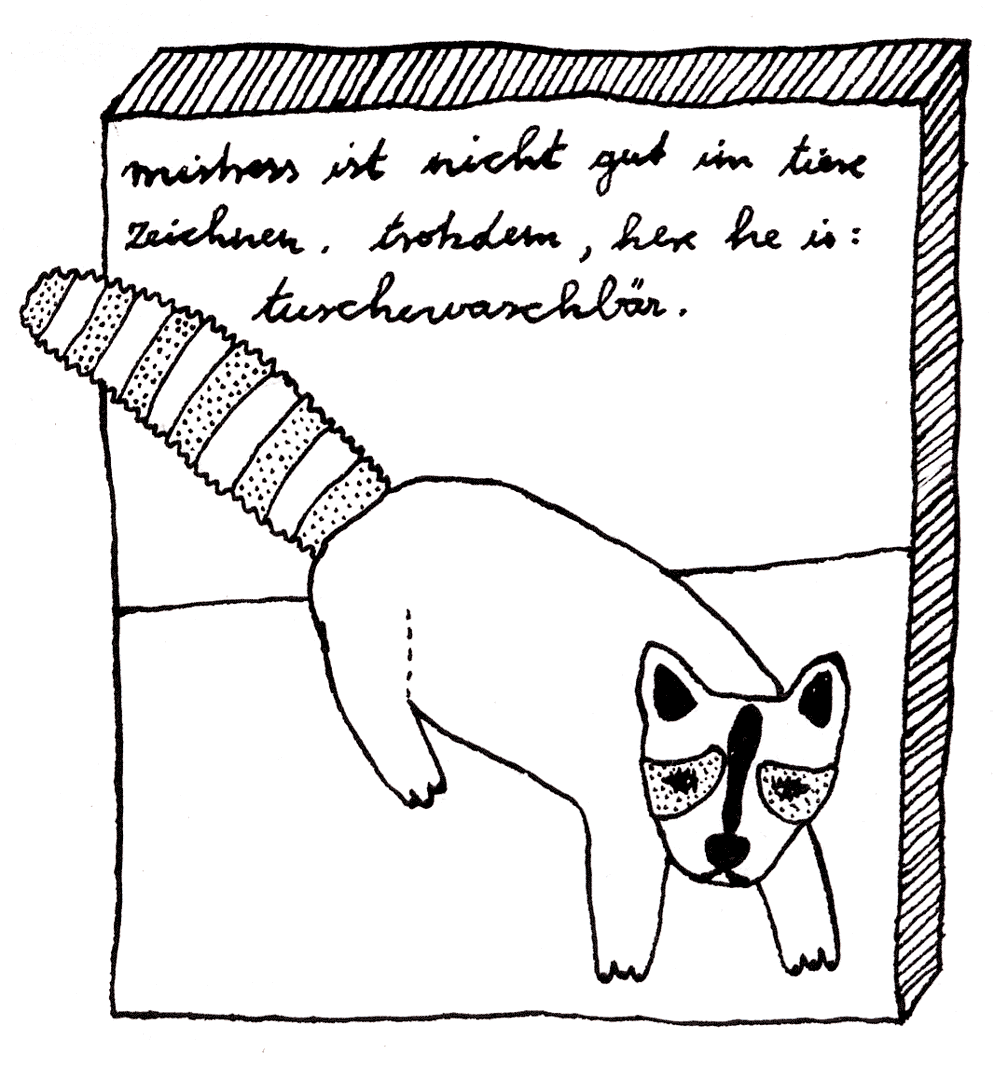 mistress ist nicht gut im tiere
zeichnen. trotzdem, here he is:
tuschewaschbär.